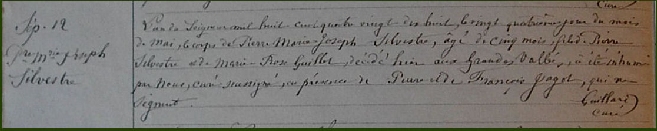 Curé
Sép. 12
Pre Mie Joseph
Silvestre
L'an du Seigneur mil huit cent quatre vingt dix huit, le vingt quatrième jour du mois
de mai, le corps de Pierre-Marie-Joseph Silvestre, âgé de cinq mois, fils de Pierre
Silvestre et de Marie-Rose Guillet, décédé hier aux Grandes Vallées, a été inhumé
par Nous, curé soussigné, en présence de Pierre et de François Jagot, qui ne
signent.
Guillard
Curé